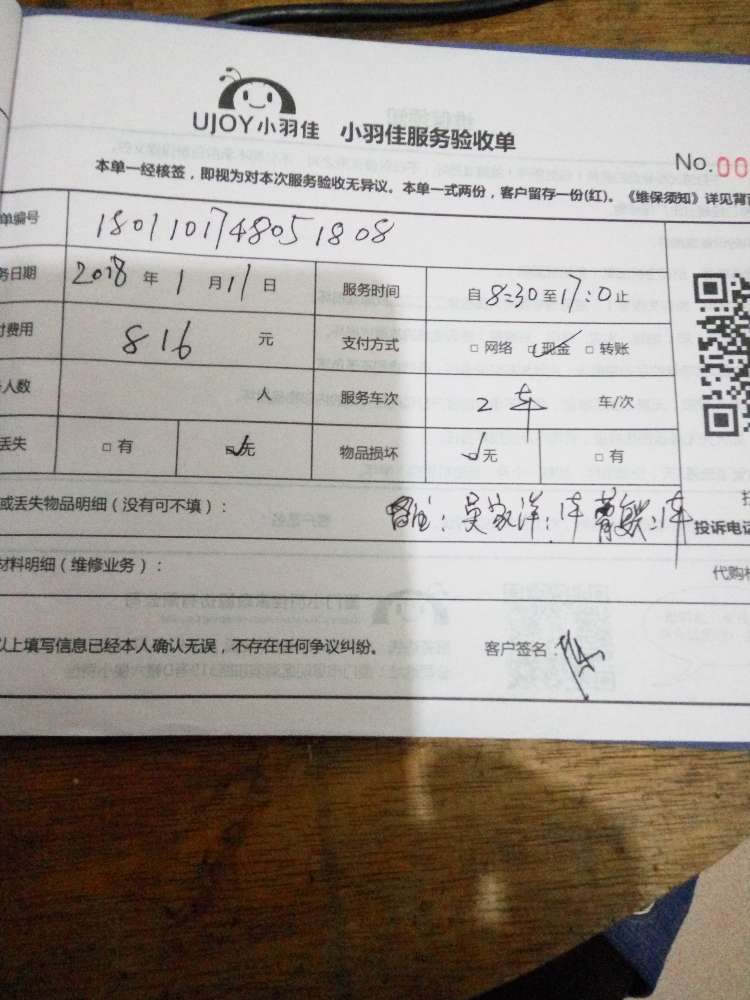 UJOY小羽佳 小羽佳服务验收单
No.00
本单一经核签，即视为对本次服务验收无异议。本单一式两份，客户留存一份(红)。《维保须知》详见背
单编号 1801101748051808
务日期 2018 年 1 月 11 日 服务时间 自 8:30 至 17:0 止
付费用 816 元 支付方式 □ 网络 ☑ 现金 □ 转账
人数 人 服务车次 2车 车/次
丢失 □ 有 ☑ 无 物品损坏 ☑ 无 □ 有
或丢失物品明细（没有可不填）：
投诉电话
材料明细（维修业务）：
代购
以上填写信息已经本人确认无误，不存在任何争议纠纷。 客户签名：